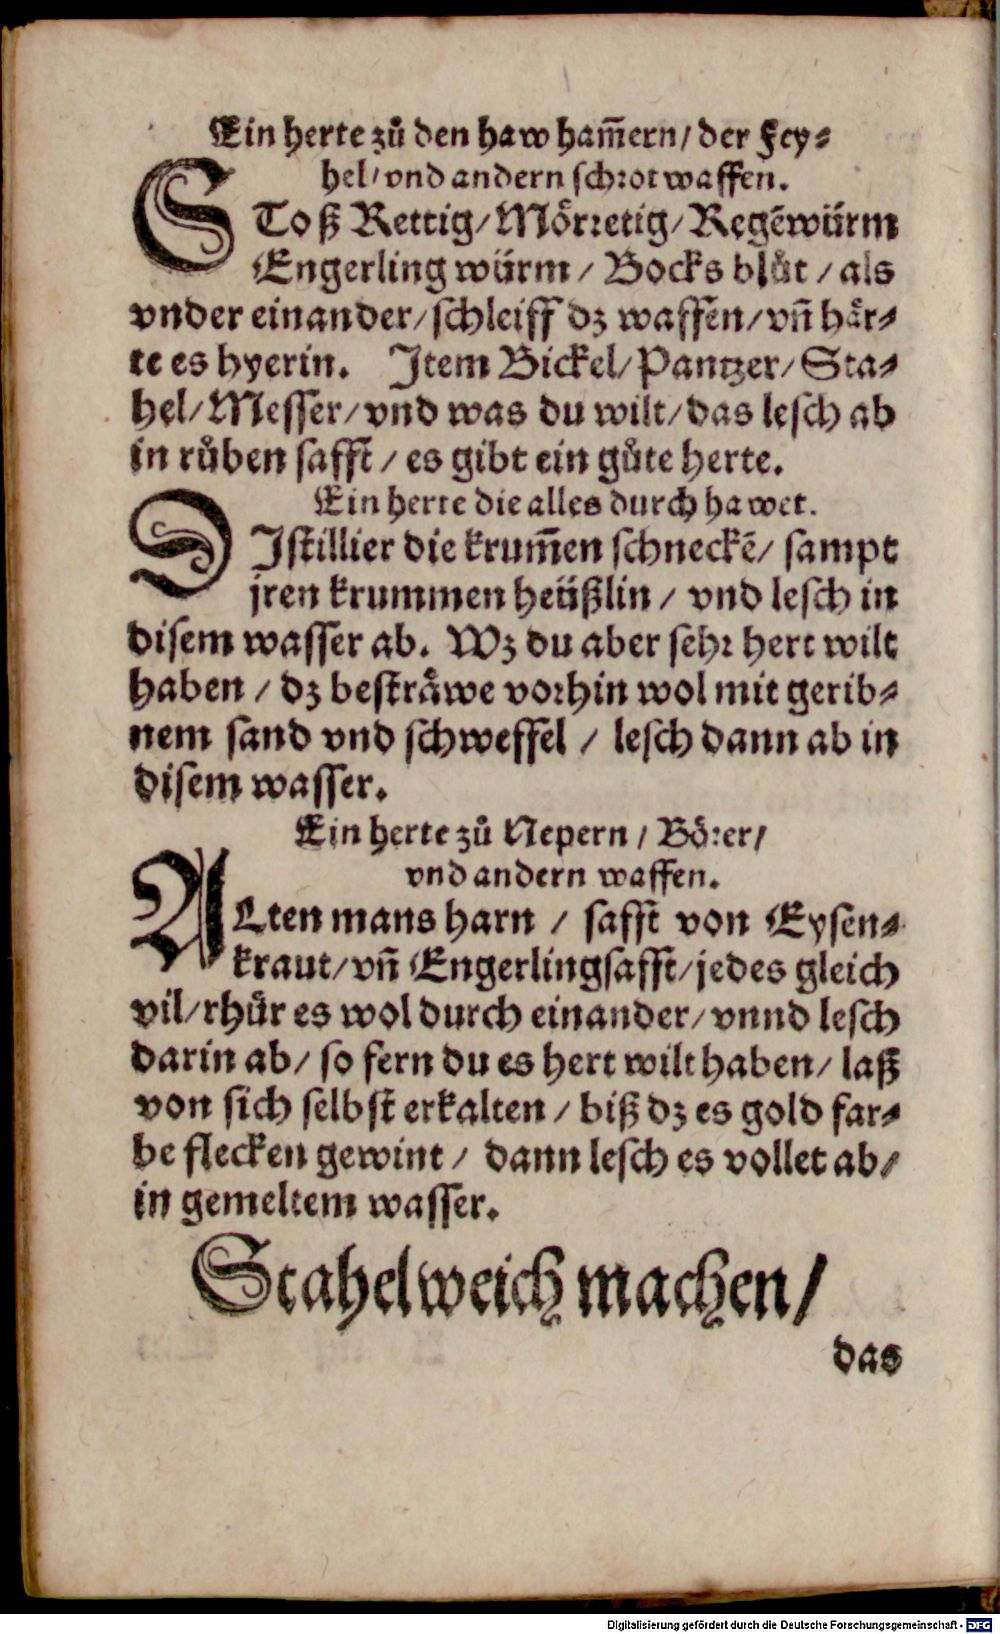 Ein herte zů den haw ham̃ern/ der Fey⸗
hel/ vnd andern schrotwaffen.
SToß Rettig/ Mörretig/ Regẽwürm
Engerling würm/ Bocks blůt/ als
vnder einander/ schleiff dz waffen/ vñ här⸗
te es hyerin. Item Bickel/ Pantzer/ Sta⸗
hel/ Messer/ vnd was du wilt/ das lesch ab
in růben safft/ es gibt ein gůte herte.
Ein herte die alles durch hawet.
DIstillier die krum̃en schneckẽ/ sampt
jren krummen heüßlin/ vnd lesch in
disem wasser ab. Wz du aber sehr hert wilt
haben/ dz besträwe vorhin wol mit gerib⸗
nem sand vnd schweffel/ lesch dann ab in
disem wasser.
Ein herte zů Nepern/ Börer/
vnd andern waffen.
ALten mans harn/ safft von Eysen⸗
kraut/ vñ Engerlingsafft/ jedes gleich
vil/ rhür es wol durch einander/ vnnd lesch
darin ab/ so fern du es hert wilt haben/ laß
von sich selbst erkalten/ biß dz es gold far⸗
be flecken gewint/ dann lesch es vollet ab/
in gemeltem wasser.
Stahel weich machen/
das
Digitalisierung gefördert durch die Deutsche Forschungsgemeinschaft - DFG